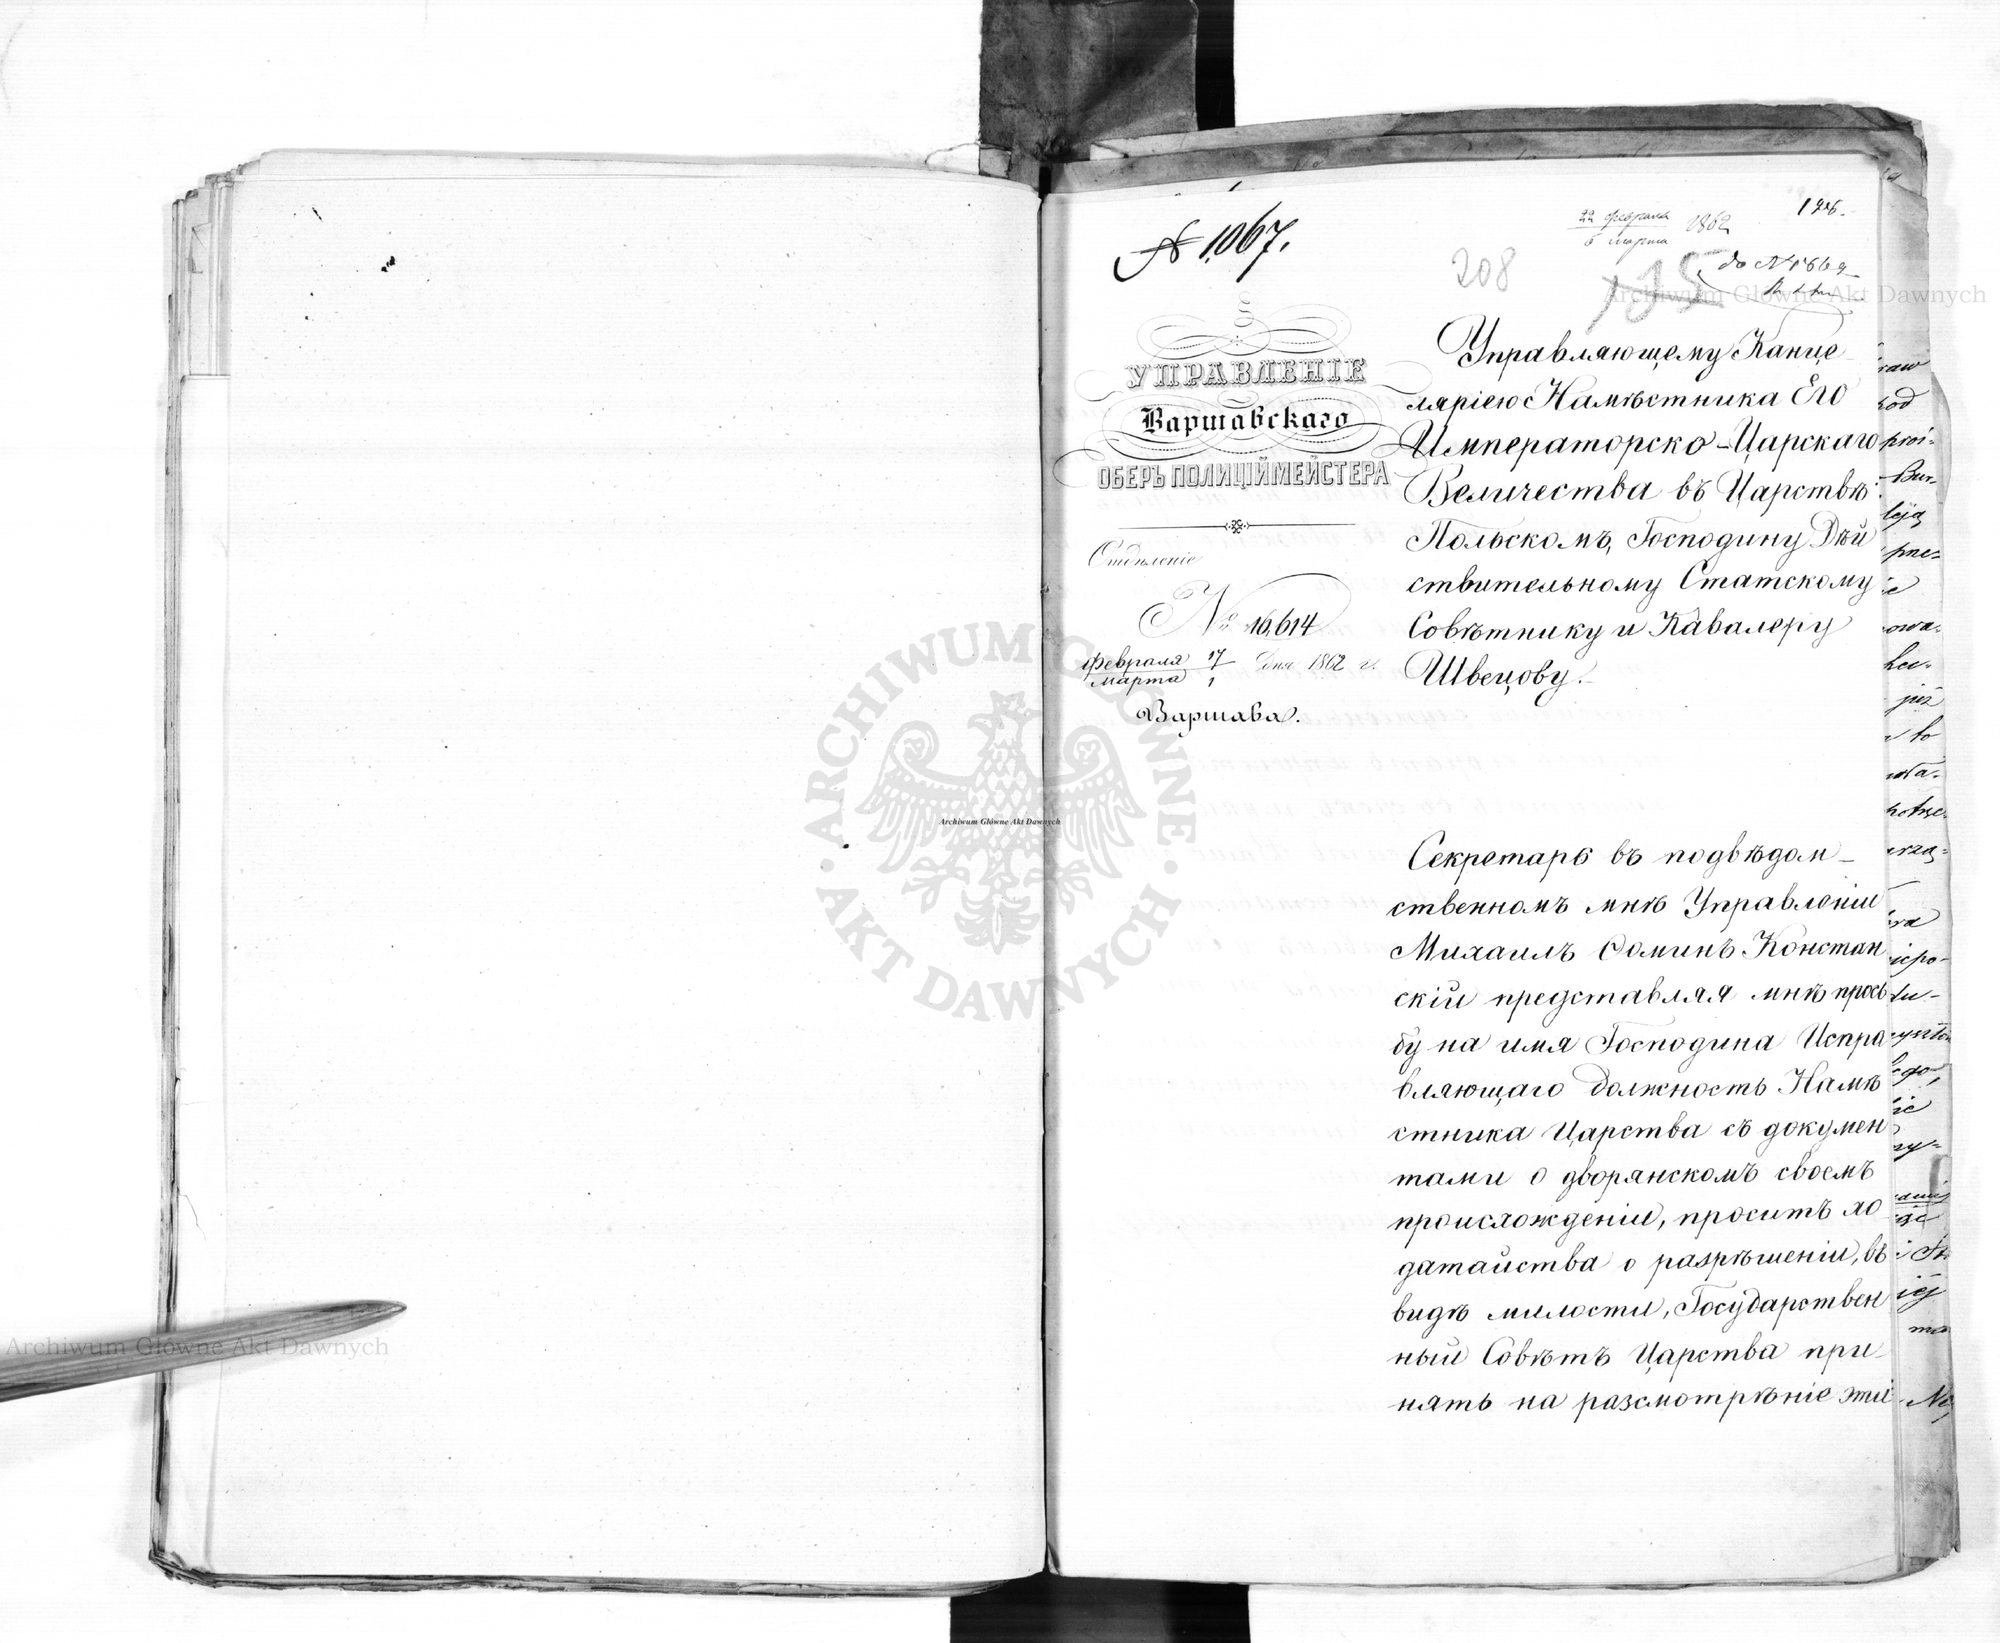 № 1067.
22 февраля
6 марта 1862
126.
208
135
до №1862
УПРАВЛЕНІЕ
Варшавскаго
ОБЕРЪ ПОЛИЦІЙМЕЙСТЕРА
Отдѣленіе
№ 16,614
Февраля 17
Марта 1 дня 1862 г.
Варшава.
Управляющему Канце-
ляріею Намѣстника Его
Императорско-Царскаго
Величества въ Царствѣ
Польскомъ, Господину Дѣй
ствительному Статскому
Совѣтнику и Кавалеру
Швецову.
Секретарь въ подвѣдом-
ственномъ мнѣ Управленіи
Михаилъ Фоминъ Констан
скій представляя мнѣ прось
бу на имя Господина Испра
вляющаго должность Намѣ
стника Царства съ докумен
тами о дворянскомъ своемъ
происхожденіи, проситъ хо
датайства о разрѣшеніи, въ
видѣ милости, Государствен
ный Совѣтъ Царства при-
нять на разсмотрѣніе эти
Archiwum Główne Akt Dawnych
ARCHIWUM GŁÓWNE AKT DAWNYCH
Archiwum Główne Akt Dawnych
Archiwum Główne Akt Dawnych